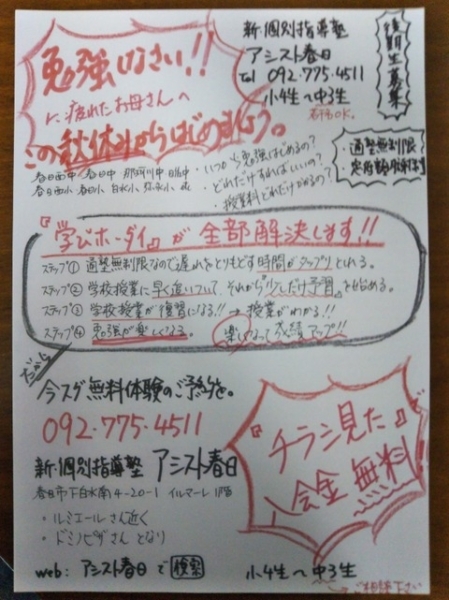 勉強しなさい!!
に疲れたお母さんへ
この秋休みからはじめましょう。
新・個別指導塾
アシスト春日
Tel 092-775-4511
小4生〜中3生
高校もOK。
後期生募集
・通塾無制限
定額勉強し放題
春日西中・春日中 那珂川中 日佐中
春日西小 春日小 白水小 弥永小 他
・いつから勉強はじめるの?
・どれだけすればいいの?
・授業料どれだけかかるの?
『学びホーダイ』が全部解決します!!
ステップ① 通塾無制限なので遅れをとりもどす時間がタップリとれる。
ステップ② 学校授業に早く追いついて それから『少しだけ予習』を始める。
ステップ③ 学校授業が復習になる!! → 授業がわかる!!
ステップ④ 勉強が楽しくなる。 楽しくなって成績アップ!!
だから
今スグ無料体験のご予約を。
092-775-4511
新・個別指導塾 アシスト春日
春日市下白水南4-20-1 イルマーレ1階
・ルミエールさん近く
・ドミノピザさんとなり
web: アシスト春日で検索
『チラシ見た』
入会金無料
小4生〜中3生
ご相談下さい